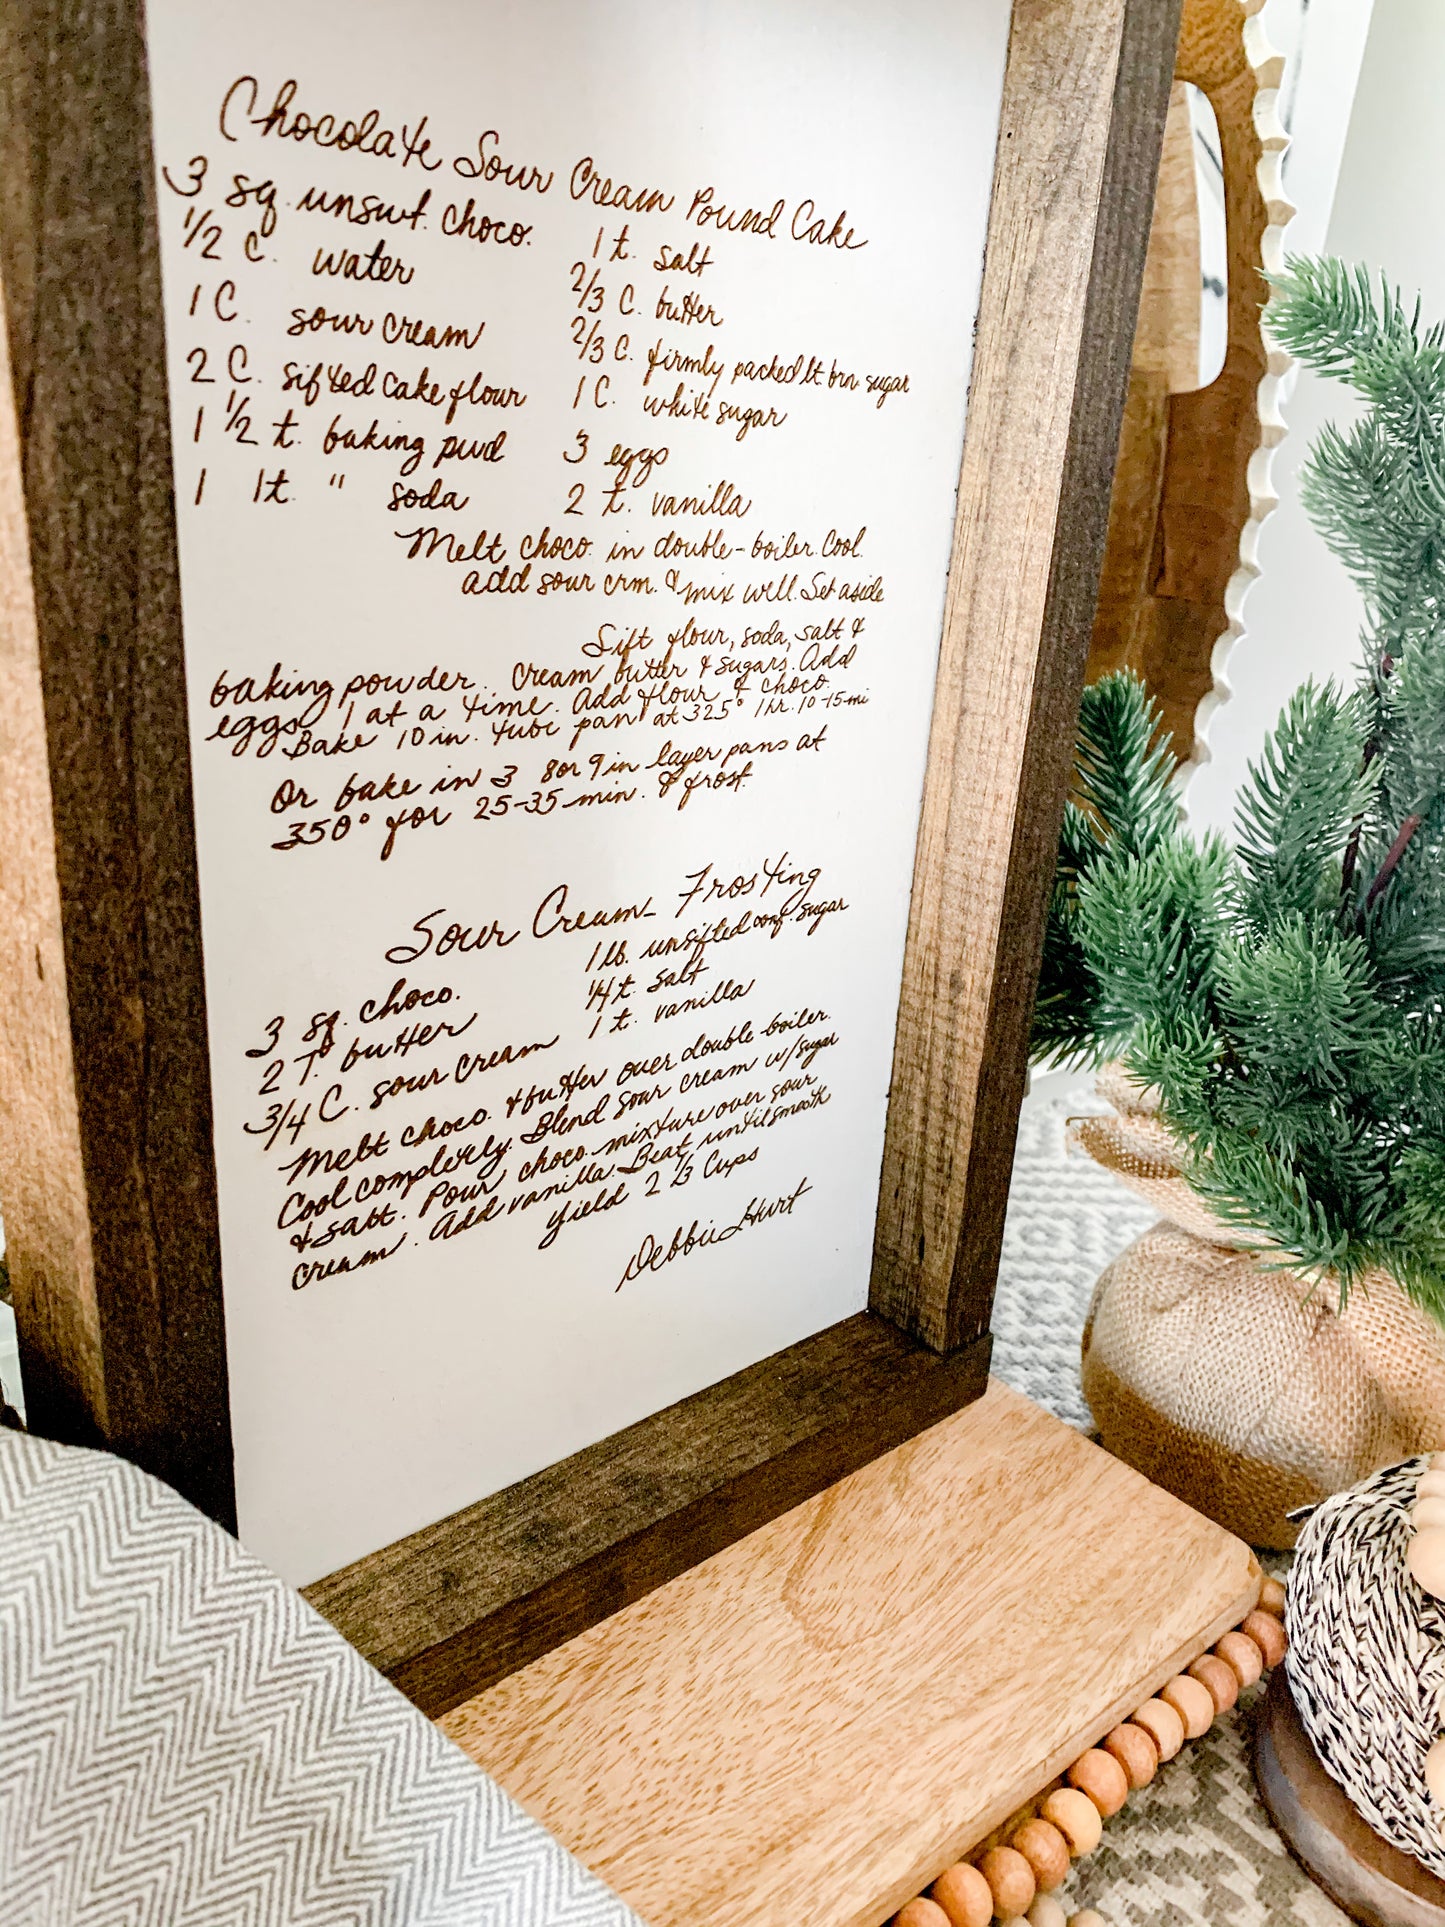 Chocolate Sour Cream Pound Cake
3 sq. unswt. choco.
1/2 C. water
1 C. sour cream
2 C. sifted cake flour
1 1/2 t. baking pwd
1 1t. " soda
1 t. salt
2/3 C. butter
2/3 C. firmly packed lt. brn sugar
1 C. white sugar
3 eggs
2 t. vanilla
Melt choco. in double-boiler. Cool.
add sour crm. & mix well. Set aside
Sift flour, soda, salt &
baking powder. Cream butter & sugars. Add
eggs 1 at a time. Add flour & choco.
Bake 10 in. tube pan at 325° 1 hr. 10-15 mi
Or bake in 3 8 or 9 in layer pans at
350° for 25-35 min. & frost.
Sour Cream Frosting
3 sq. choco.
2 T. butter
3/4 C. sour cream
1 lb. unsifted conf. sugar
1/4 t. salt
1 t. vanilla
Melt choco. & butter over double-boiler.
Cool completely. Blend sour cream w/sugar
& salt. Pour choco. mixture over sour
cream. Add vanilla. Beat until smooth
Yield 2 1/3 Cups
Debbie Hurt